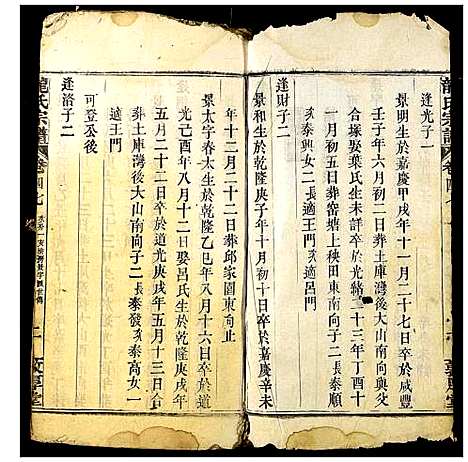 龍氏宗譜 卷四七
逢光子一
景明生於嘉慶甲戌年十一月二十七日卒於咸豐
壬子年六月初二日葬土庫灣後大山南向與父
合塚娶葉氏生未詳卒於光緒二十三年丁酉十
一月初五日葬窑塘上秧田東南向子二長泰順
次泰興女二長適 次適呂門
逢財子二
景和生於乾隆庚子年十月初十日卒於嘉慶辛未
年十二月二十二日葬邱家園東向止
景太字春太生於乾隆乙巳年八月十六日卒於道
光己酉年八月十二日娶呂氏生於乾隆庚戌年
五月二十二日卒於道光庚戌年五月十三日合
葬土庫灣後大山南向子二長泰發次泰高女一
適王門
可登丞後
逢洛子二
龍氏宗譜 卷四七
二 敦厚堂